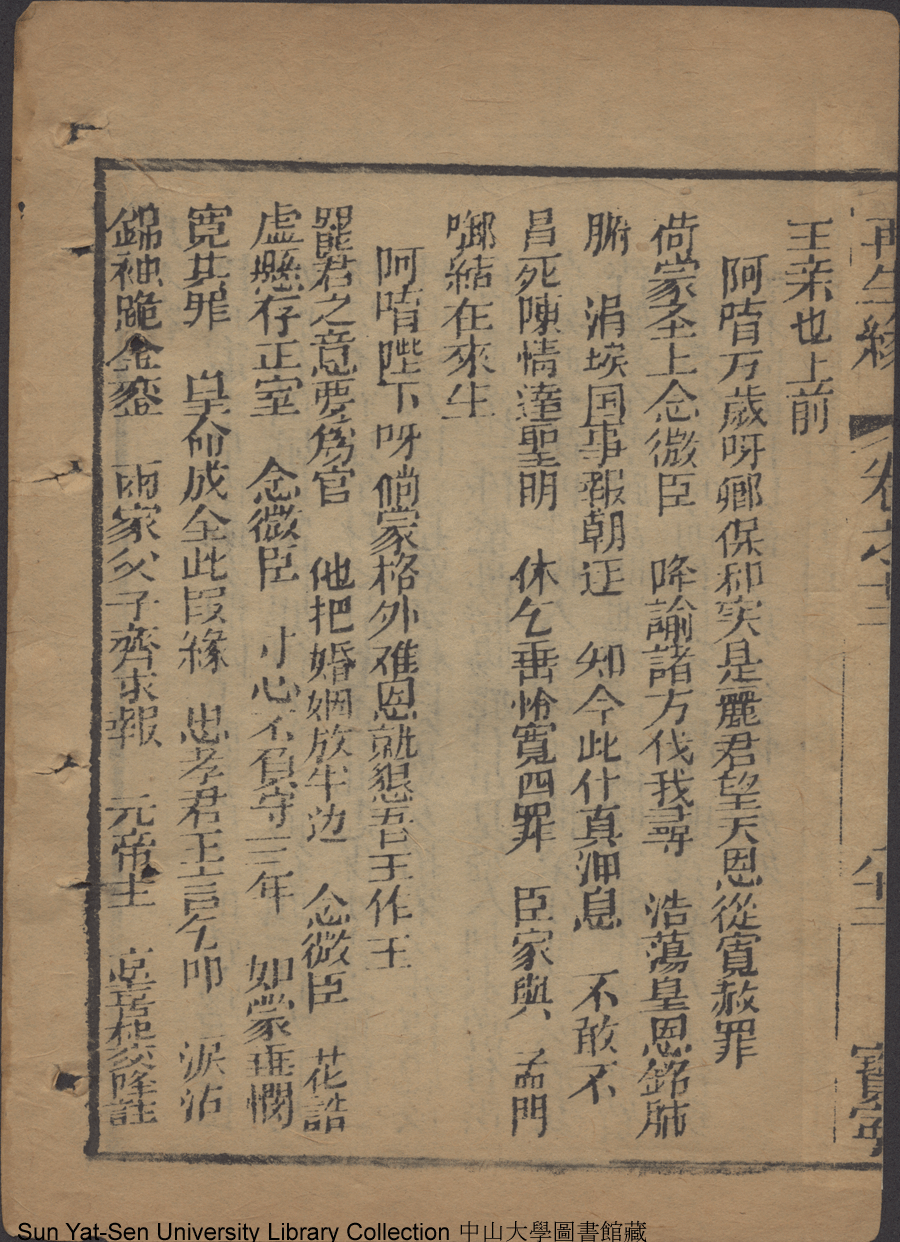 再生緣 卷六十三 八十三 寶寧
王亲也上前
阿唷万歲呀鄉保和实是麗君望天恩從寬赦罪
荷蒙圣上念微臣 降諭諸方伐我尋 浩蕩皇恩銘肺
腑 涓埃囯事報朝廷 知今此什真洏息 不敢不
昌死陳情達聖明 休乞垂怜寬四罪 臣家與 孟門
啣結在來生
阿唷陛下呀倘蒙格外难恩就懇吾王作主
麗君之意要為官 他把婚姻放半边 念微臣 花誥
虛懸存正室 念微臣 寸心不負守三年 如蒙垂憫
寬其罪 皇命成全此段緣 忠孝君王言乞叩 淚沾
錦袖跪金鑾 兩家父子齊求報 元帝主
Sun Yat-Sen University Library Collection 中山大學圖書館藏